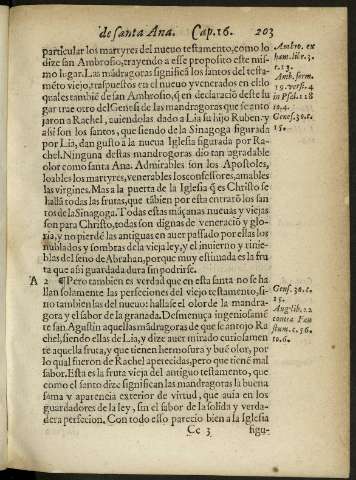 de Santa Ana. Cap. 16. 203
particular los martyres del nueuo testamento, como lo
dize san Ambrosio, trayendo a esse proposito este mis-
mo lugar. Las mãdragoras significã los santos del testa-
mẽto viejo, traspuestos en el nueuo y venerados en el: lo
quales tambiẽ de san Ambrosio, q̃ en declaraciõ deste lu
gar trae otro del Genesis de las mandragoras que se anto
jaron a Rachel, auiendolas dado a Lia su hijo Ruben: y
asi son los santos, que siendo de la Sinagoga figurada
por Lia, dan gusto a la nueua Iglesia figurada por Ra-
chel. Ninguna destas mandragoras dio tan agradable
olor como santa Ana. Admirables son los Apostoles,
loables los martyres, venerables los confessores, amables
las virgines. Mas a la puerta de la Iglesia q̃ es Christo se
hallã todas las frutas, que tãbien por esta entrarõ los san
tos de la Sinagoga. Todas estas mãçanas nueuas y viejas
son para Christo, todas son dignas de veneraciõ y glo-
ria, y no pierdẽ las antiguas en auer passado por ellas los
nublados y sombras de la vieja ley, y el inuierno y tinie-
blas del seno de Abrahan, porque muy estimada es la fru
ta que asi guardada dura sin podrirse.
A 2 ¶ Pero tambien es verdad que en esta santa no se ha
llan solamente las perfeciones del viejo testamento, si-
no tambien las del nueuo: hallase el olor de la mandra-
gora y el sabor de la granada. Desmenuça ingeniosamẽ
te san Agustin aquellas mãdragoras de que se antojo Ra
chel, siendo ellas de Lia, y dize auer mirado curiosamen
te aquella fruta, y que tienen hermosura y buẽ olor, por
lo qual fueron de Rachel apetecidas, pero que tienẽ mal
sabor. Esta es la fruta vieja del antiguo testamento, que
como el santo dize significan las mandragoras la buena
fama y aparencia exterior de virtud, que auia en los
guardadores de la ley, sin el sabor de la solida y verda-
dera perfecion. Con todo esso parecio bien a la Iglesia
Cc 3 figu-
Ambro. ex
ham. lii r. 3.
c. 13.
Amb. serm.
19. vers. 4
in Psal. 118
to. 4.
Genes. 30. c.
15.
Gens. 30. c.
15.
Aug. lib. 22
contra Fau
stum. c. 56.
to. 6.